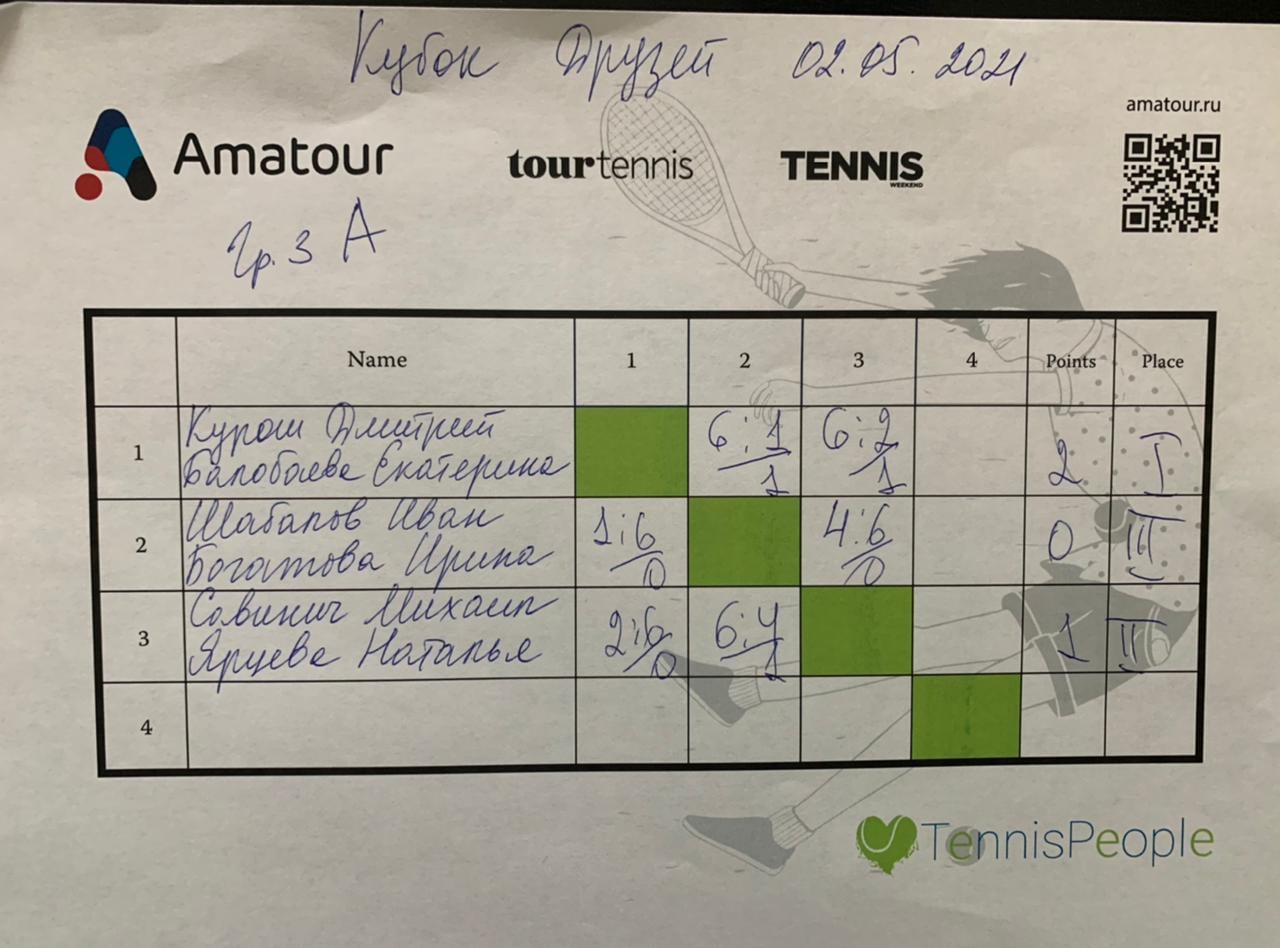 Кубок Друзей 02.05.2021
amatour.ru
Amatour tourtennis TENNIS
WEEKEND
Гр. 3 А
Name 1 2 3 4 Points Place
1 Курош Дмитрий
Балобаева Екатерина 6:1/1 6:2/1 2 I
2 Шабанов Иван
Богатова Ирина 1:6/0 4:6/0 0 III
3 Савинич Михаил
Ярцева Наталья 2:6/0 6:4/1 1 II
4
TennisPeople